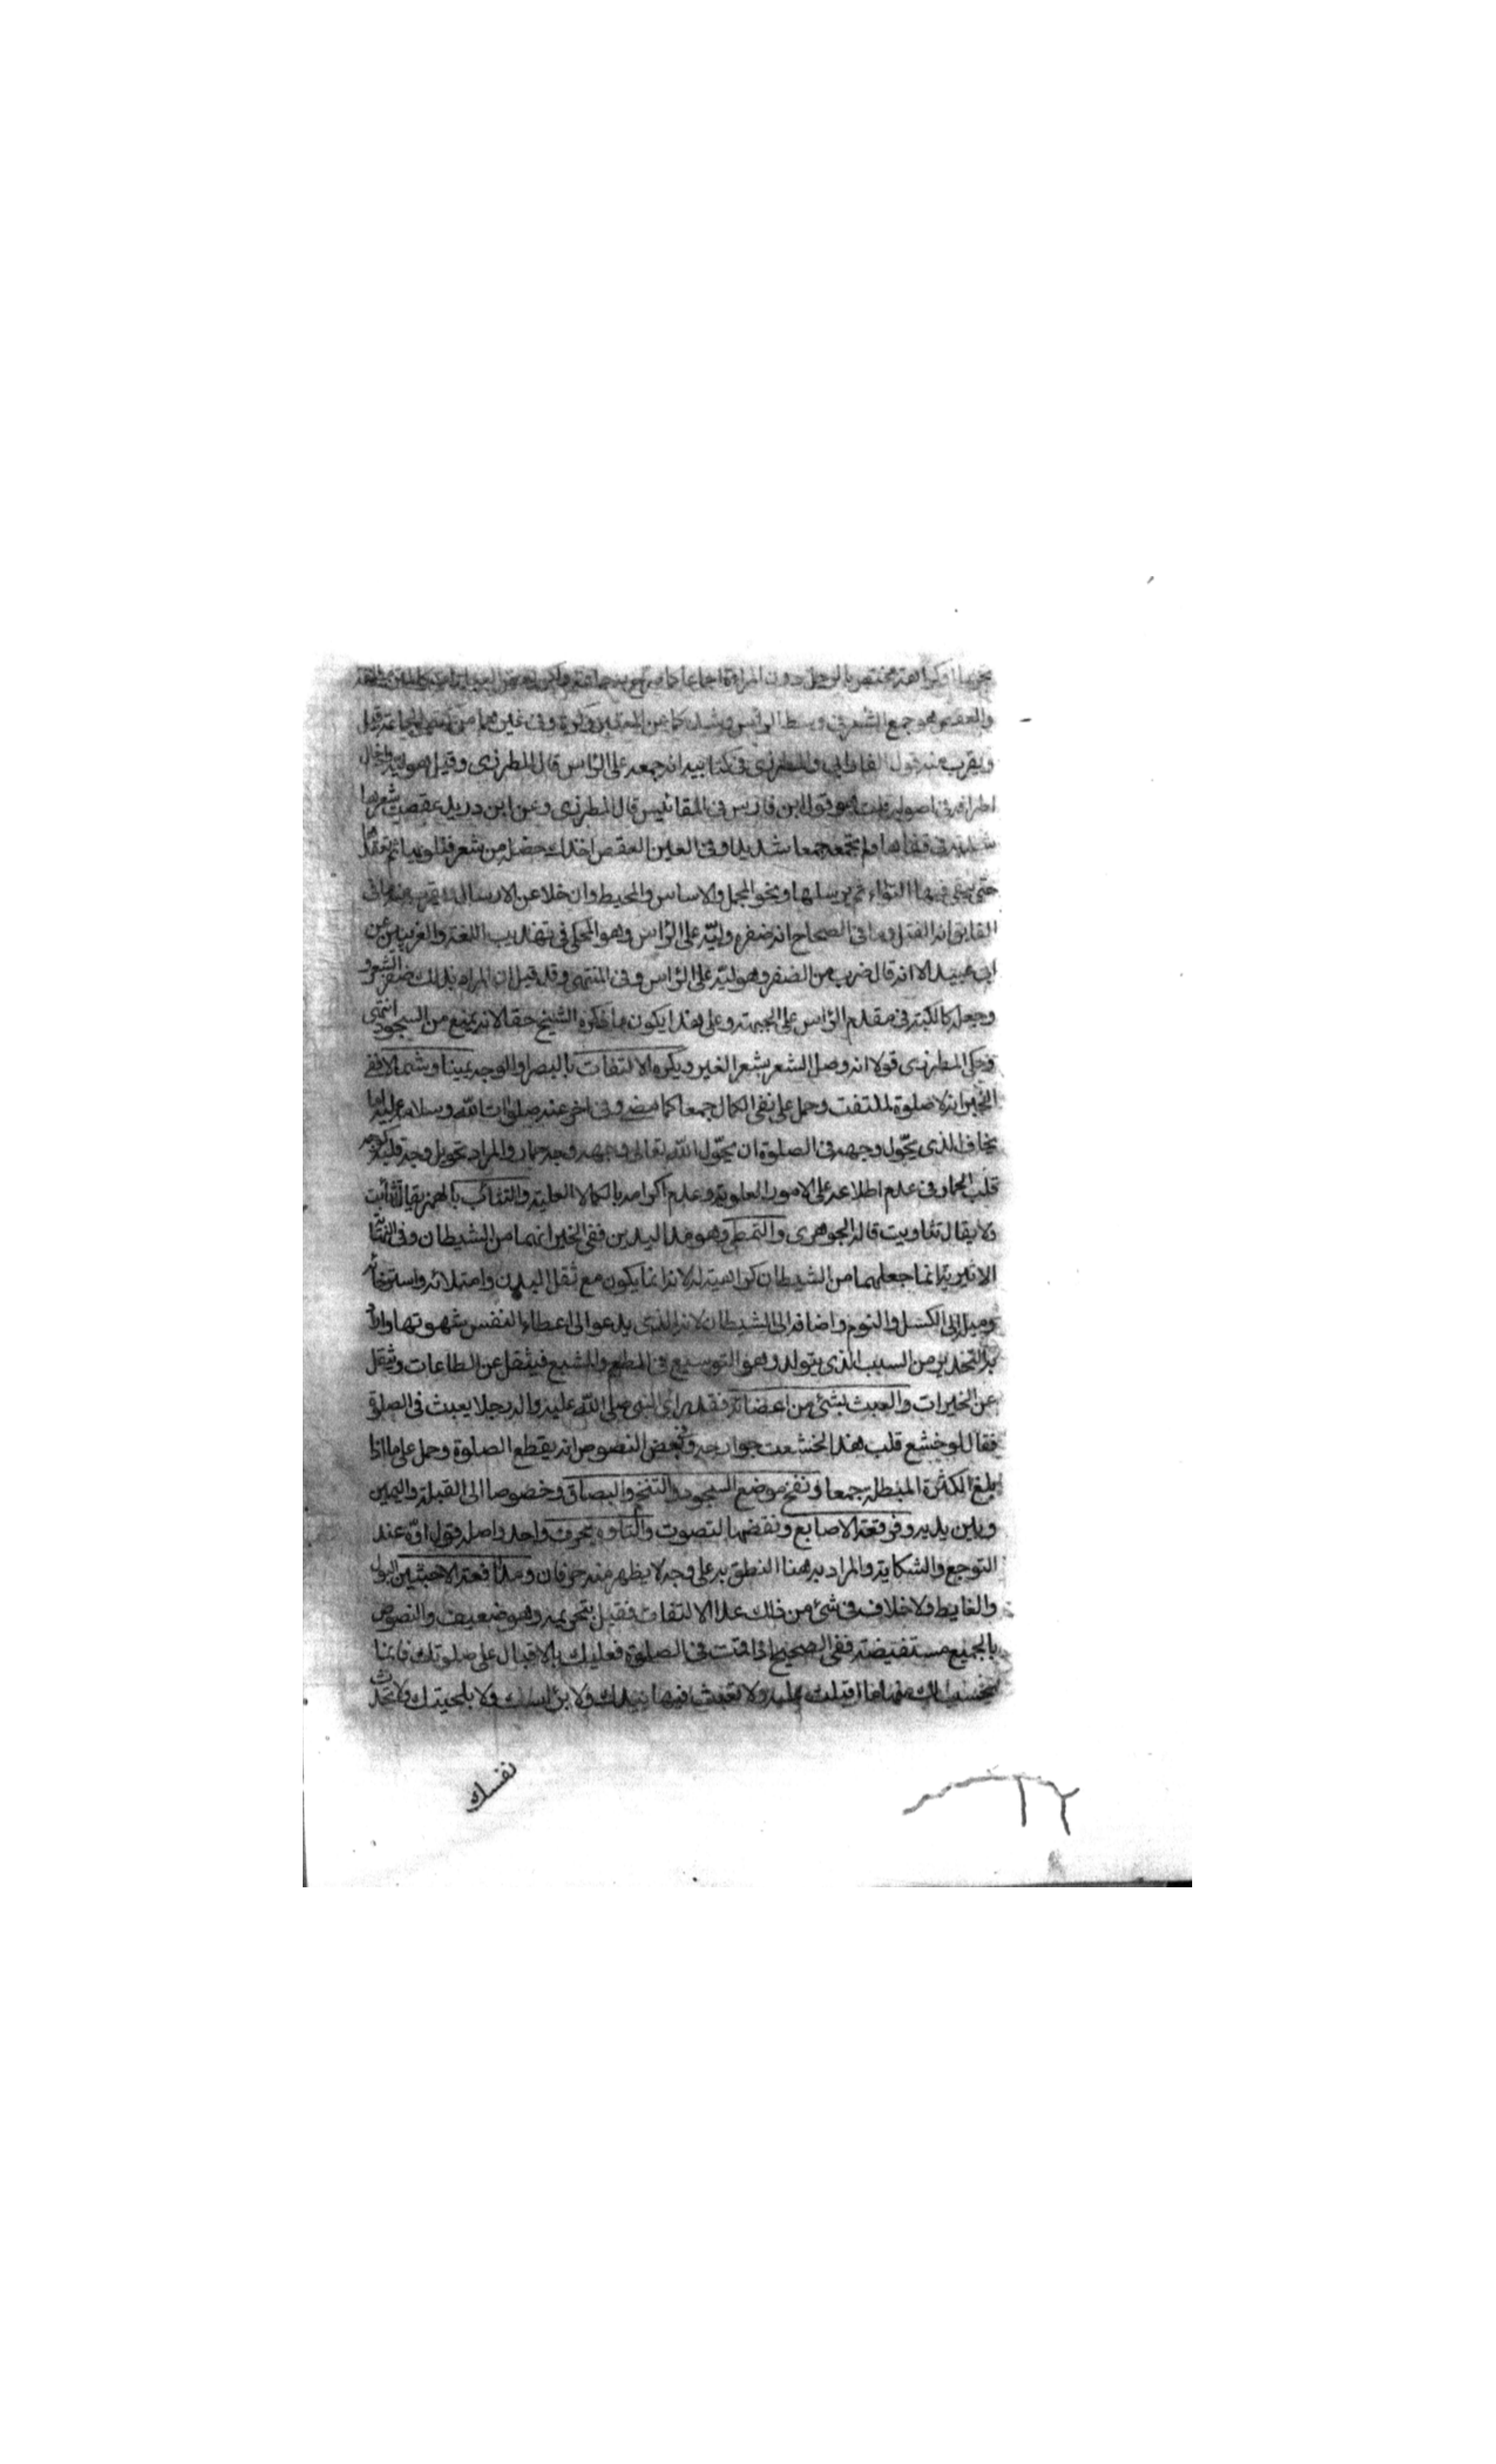 مختص بالرجل دون المراءة اجماعا كما صرح به جماعة
والعقص هو جمع الشعر في وسط الراس وشده كما عن المعتبر والتذكرة وفى غيرهما من قيل
ويقرب منه قول الفارابي والمطرزى فى كتابيه انه جمعه على الرّاس قال المطرزى وقيل هو ليه وادخال
اطرافه فى اصوله قلت هو قول ابن فارس فى المقائيس قال المطرزى وعن ابن دريد عقصت شعرها
شدته فى قفاها ولم تجمعه جمعا شديدا وفى العين العقص اخذك خصلة من شعر فتلويها ثم تعقدها
حتى يبقى فيها التواء ثم يرسلها ونحو المجمل والاساس والمحيط وان خلا عن الارسال ويقرب منه ما فى
الفايق انه الفتل وما فى الصحاح انه ضفره وليّه على الرّاس وهو المحكى فى تهذيب اللغة والغريبين عن
ابى عبيد الا انه قال ضرب من الضفر وهو ليّه على الرّاس وفى المنتهى وقد قيل ان المراد بذلك ضفر الشعر و
وجعله كالكبة فى مقدم الرّاس على الجبهة وعلى هذا يكون ما ذكره الشيخ حقا لانه يمنع من السجود انتهى
وحكى المطرزى قولا انه وصل الشعر بشعر الغير ويكره الالتفات بالبصر او الوجه يمينا وشمالا ففى
الخبر انه لا صلوة لملتفت وحمل على نفى الكمال جمعا كما مضى وفى اخر عنه صلوات اللّه وسلامه عليه اما
يخاف الذى يحّول وجهه فى الصلوة ان يحّول اللّه تعالى وجهه وجه حمار والمراد تحويل وجه قلبه كوجه
قلب الحمار فى عدم اطلاعه على الامور العلوية وعدم اكرامه بالكمالا العلية والتثائب بالهمز يقال تثائبت
ولا يقال تثاوبت قاله الجوهرى والتمطى وهو مد اليدين ففى الخبر انهما من الشيطان وفى النهاية
الاثيرية انما جعلهما من الشيطان كراهية له لانه انما يكون مع ثقل البدن وامتلائه واسترخائه
وميله الى الكسل والنوم واضافه الى الشيطان لانه الذى يدعو الى اعطاء النفس شهوتها واراد
به التحذير من السبب الذى يتولد وهو التوسيع فى المطعم والشبع فيثقل عن الطاعات ويثقل
عن الخيرات والعبث بشئ من اعضائه فقد راى النبى صلى اللّه عليه واله رجلا يعبث فى الصلوة
فقال لو خشع قلب هذا لخشعت جوارحه وفى بعض النصوص انه يقطع الصلوة وحمل على ما اذا
بلغ الكثرة المبطلة جمعا ونفخ موضع السجود والتنخم والبصاق وخصوصا الى القبلة واليمين
وبين يديه وفرقعة الاصابع ونقضها لتصوت والتاوه بحرف واحد واصله قول اوّه عند
التوجع والشكاية والمراد به هنا النطق به على وجه لا يظهر منه حرفان ومدافعة الاخبثين البول
والغايط ولا خلاف فى شئ من ذلك عدا الالتفات فقيل بتحريمه وهو ضعيف والنصوص
بالجميع مستفيضة ففى الصحيح اذا قمت فى الصلوة فعليك بالاقبال على صلوتك فانما
يحسب لك منها ما اقبلت عليه ولا تعبث فيها بيدك ولا براسك ولا بلحيتك ولا تحدث
نفسك